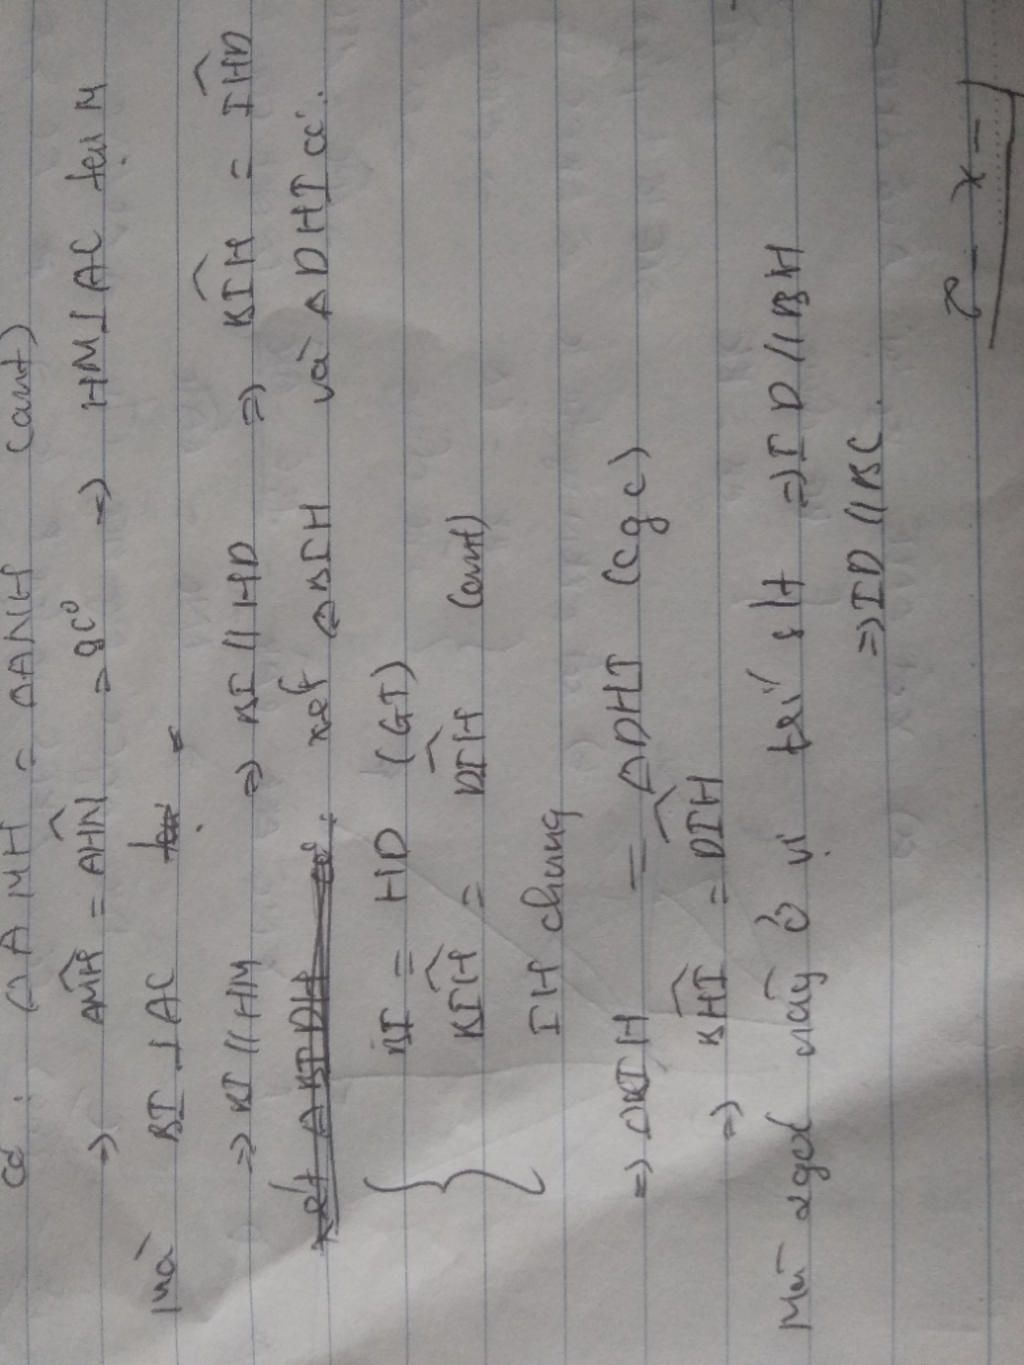 Có: ΔAMH = ΔANH (cmt)
=> AMH = AHN = 90° => HM⊥AC tại M
mà BI⊥AC
=> BI // HM => BI // HD => BIH = IHD
xét ΔBIH và ΔDHI có:
BI = HD (GT)
BIH = DIH (cmt)
IH chung
=> ΔBIH = ΔDHI (cgc)
=> BHI = DIH
Mà 2 góc này ở vị trí slt => ID // BH
=> ID // BC.